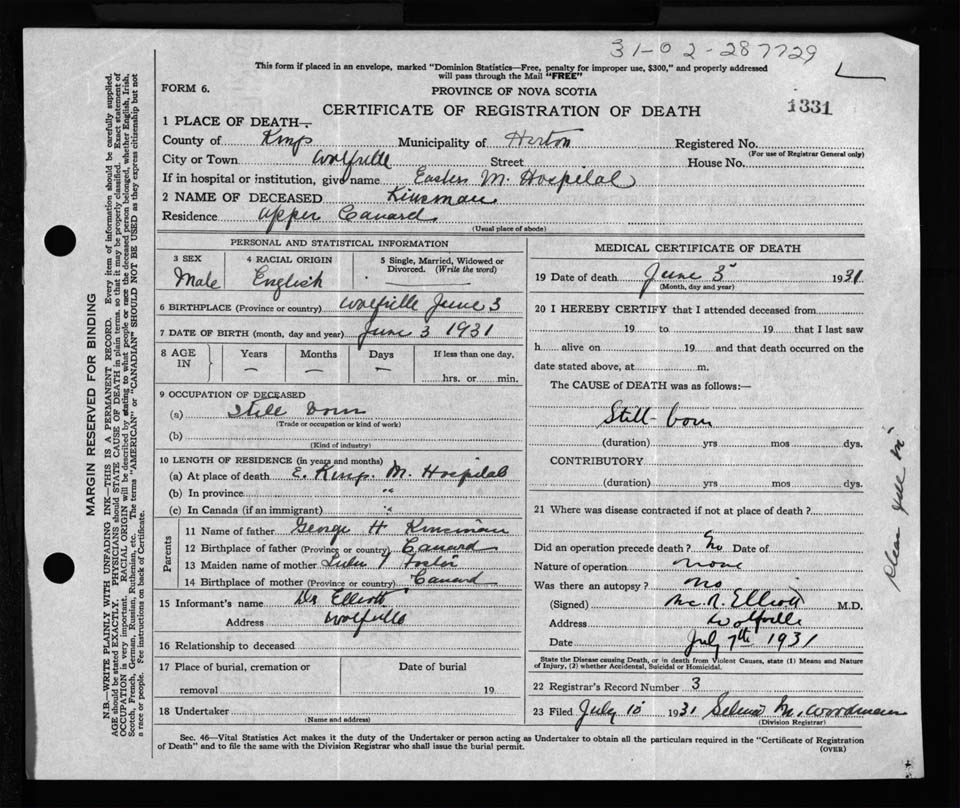 31-02-287729
This form if placed in an envelope, marked "Dominion Statistics—Free, penalty for improper use, $300," and properly addressed
will pass through the Mail "FREE"
FORM 6.
PROVINCE OF NOVA SCOTIA
CERTIFICATE OF REGISTRATION OF DEATH
1331
1 PLACE OF DEATH—
County of Kings Municipality of Horton Registered No.
(For use of Registrar General only)
City or Town Wolfville Street House No.
If in hospital or institution, give name Eastern M. Hospital
2 NAME OF DECEASED Kinsman
Residence Upper Canard
(Usual place of abode)
PERSONAL AND STATISTICAL INFORMATION
3 SEX Male
4 RACIAL ORIGIN English
5 Single, Married, Widowed or Divorced. (Write the word)
6 BIRTHPLACE (Province or country) Wolfville June 3
7 DATE OF BIRTH (month, day and year) June 3 1931
8 AGE IN Years — Months — Days — If less than one day, hrs. or min.
9 OCCUPATION OF DECEASED
(a) Still born
(Trade or occupation or kind of work)
(b)
(Kind of industry)
10 LENGTH OF RESIDENCE (in years and months)
(a) At place of death E. Kings M. Hospital
(b) In province "
(c) In Canada (if an immigrant) "
Parents
11 Name of father George H Kinsman
12 Birthplace of father (Province or country) Canard
13 Maiden name of mother Lulu Foster
14 Birthplace of mother (Province or country) Canard
15 Informant's name Dr Elliott
Address Wolfville
16 Relationship to deceased
17 Place of burial, cremation or removal Date of burial 19
18 Undertaker
(Name and address)
MEDICAL CERTIFICATE OF DEATH
19 Date of death June 3 1931
(Month, day and year)
20 I HEREBY CERTIFY that I attended deceased from
19 to 19 that I last saw
h alive on 19 and that death occurred on the
date stated above, at m.
The CAUSE of DEATH was as follows:—
Still-born
(duration) yrs mos dys.
CONTRIBUTORY
(duration) yrs mos dys.
21 Where was disease contracted if not at place of death?
Did an operation precede death? No Date of
Nature of operation none
Was there an autopsy? no
(Signed) M. R. Elliott M.D.
Address Wolfville
Date July 7th 1931
State the Disease causing Death, or in death from Violent Causes, state (1) Means and Nature
of Injury, (2) whether Accidental, Suicidal or Homicidal.
22 Registrar's Record Number 3
23 Filed July 10 1931 Selina M. Woodman
(Division Registrar)
Sec. 46—Vital Statistics Act makes it the duty of the Undertaker or person acting as Undertaker to obtain all the particulars required in the "Certificate of Registration
of Death" and to file the same with the Division Registrar who shall issue the burial permit.
(OVER)
MARGIN RESERVED FOR BINDING
N.B.—WRITE PLAINLY WITH UNFADING INK—THIS IS A PERMANENT RECORD. Every item of information should be carefully supplied.
AGE should be stated EXACTLY. PHYSICIANS should STATE CAUSE OF DEATH in plain terms, so that it may be properly classified. Exact statement of
OCCUPATION is very important. RACIAL ORIGIN will be described by stating to what people or race the deceased person belonged, whether English, Irish,
Scotch, French, German, Russian, Ruthenian, etc. The terms "AMERICAN" or "CANADIAN" SHOULD NOT BE USED as they express citizenship but not
a race or people. See instructions on back of Certificate.